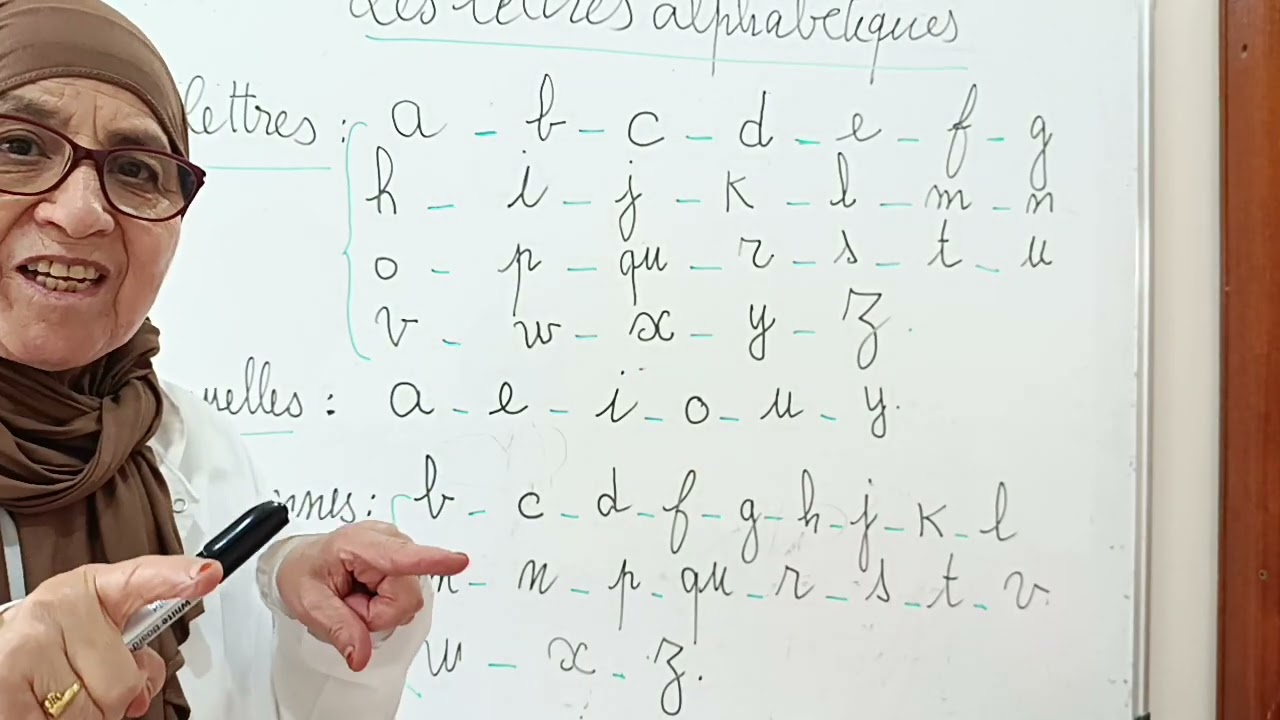 Les lettres alphabétiques
lettres : a - b - c - d - e - f - g
h - i - j - k - l - m - n
o - p - qu - r - s - t - u
v - w - x - y - z.
uelles : a - e - i - o - u - y.
nnes : b - c - d - f - g - h - j - k - l
m - n - p - qu - r - s - t - v
w - x - z.
White board